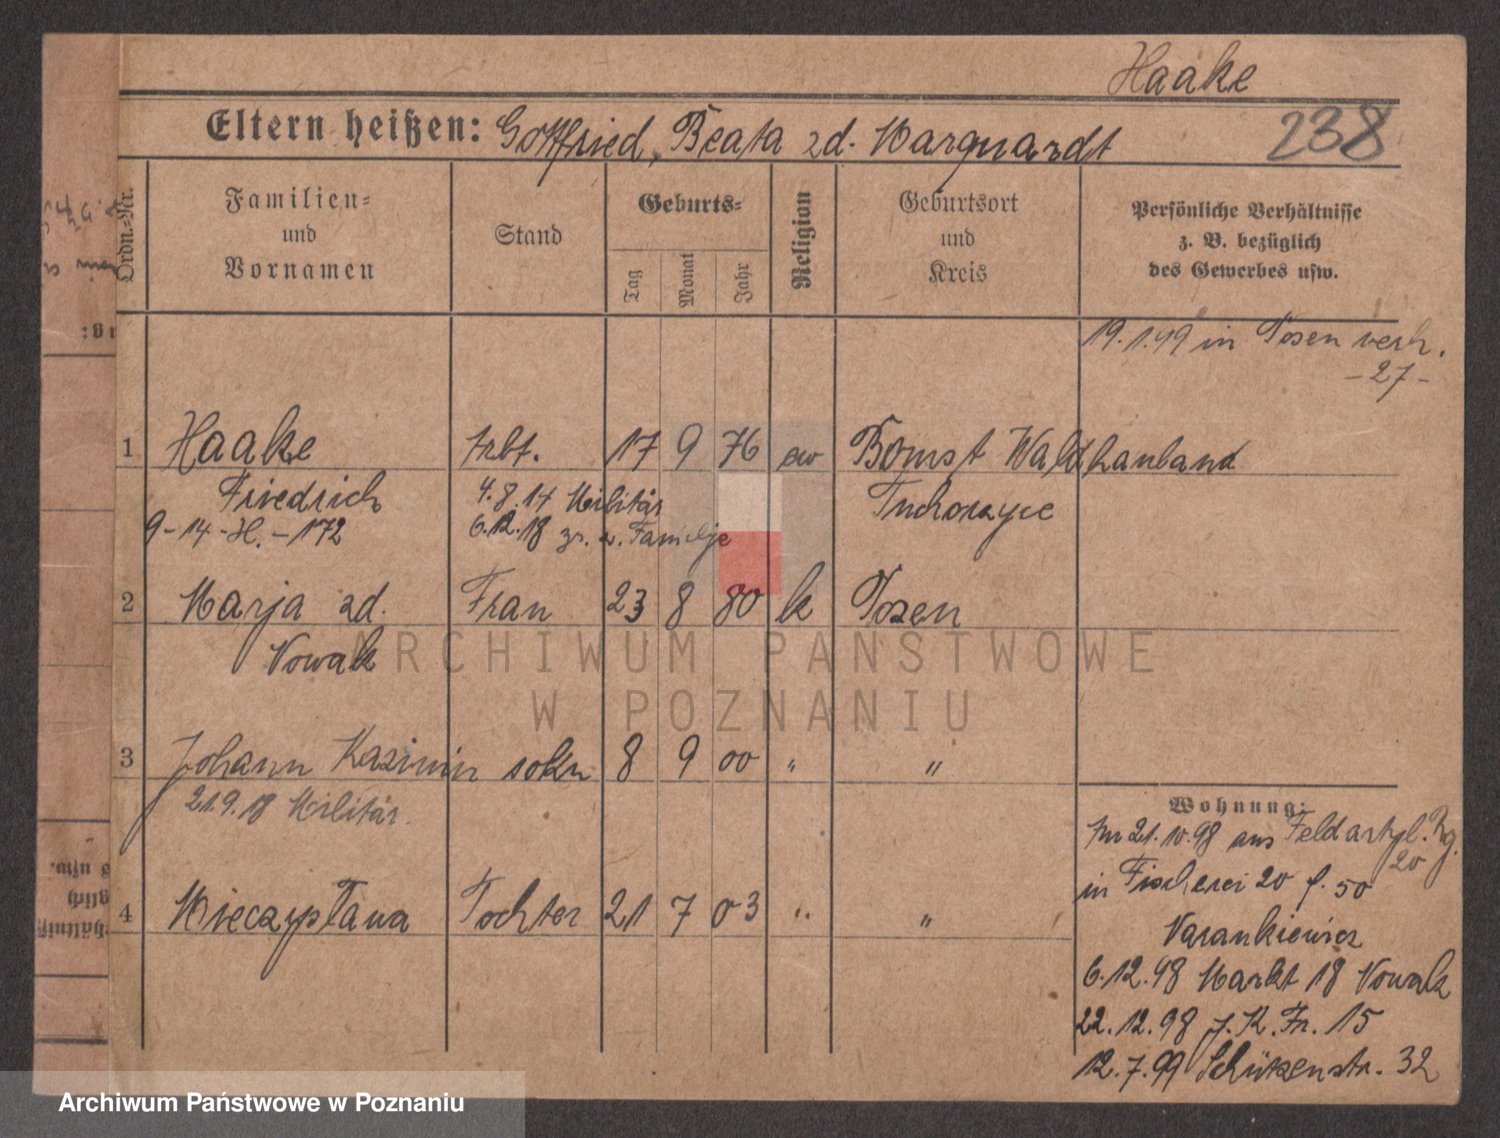 Haake
238
Eltern heißen: Gottfried, Beata zd. Marquardt
Ordn.-Nr.
Familien- und Vornamen
Stand
Geburts-
Tag
Monat
Jahr
Religion
Geburtsort und Kreis
Persönliche Verhältnisse z. B. bezüglich des Gewerbes usw.
19.1.99 in Posen verh.
-27-
1 Haake Arbt. 17 9 76 ew Bomst Waldhauland
Friedrich 4.8.14 Militär Tuchorzyce
9-14-H.-172 6.12.18 zr. z. Familje
2 Marja zd. Frau 23 8 80 k Posen
Nowak
3 Johann Kazimir sohn 8 9 00 " "
21.9.18 Militär.
4 Mieczysława Tochter 21 7 03 " "
Wohnung:
Am 21.10.98 aus Feldartyl. Rg. 20
in Fischerei 20 f. 50
Narankiewicz
6.12.98 Markt 18 Nowak
22.12.98 J.K.Fr. 15
12.7.99 Schützenstr. 32
ARCHIWUM PAŃSTWOWE
W POZNANIU
Archiwum Państwowe w Poznaniu